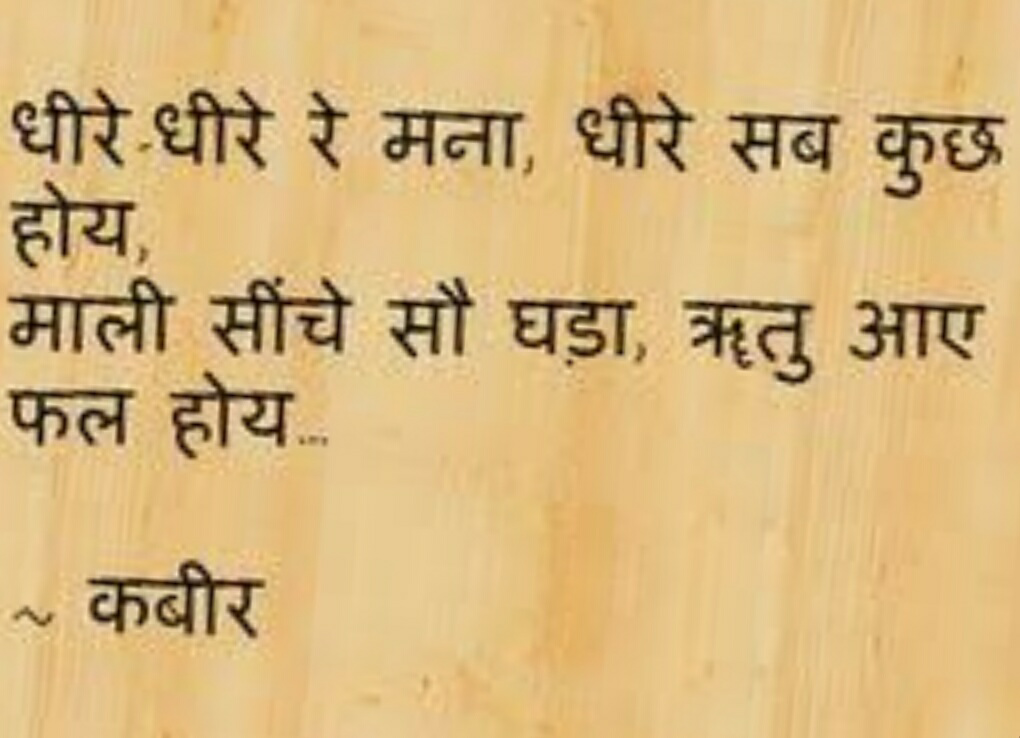 धीरे-धीरे रे मना, धीरे सब कुछ
होय,
माली सींचे सौ घड़ा, ॠतु आए
फल होय...
~ कबीर